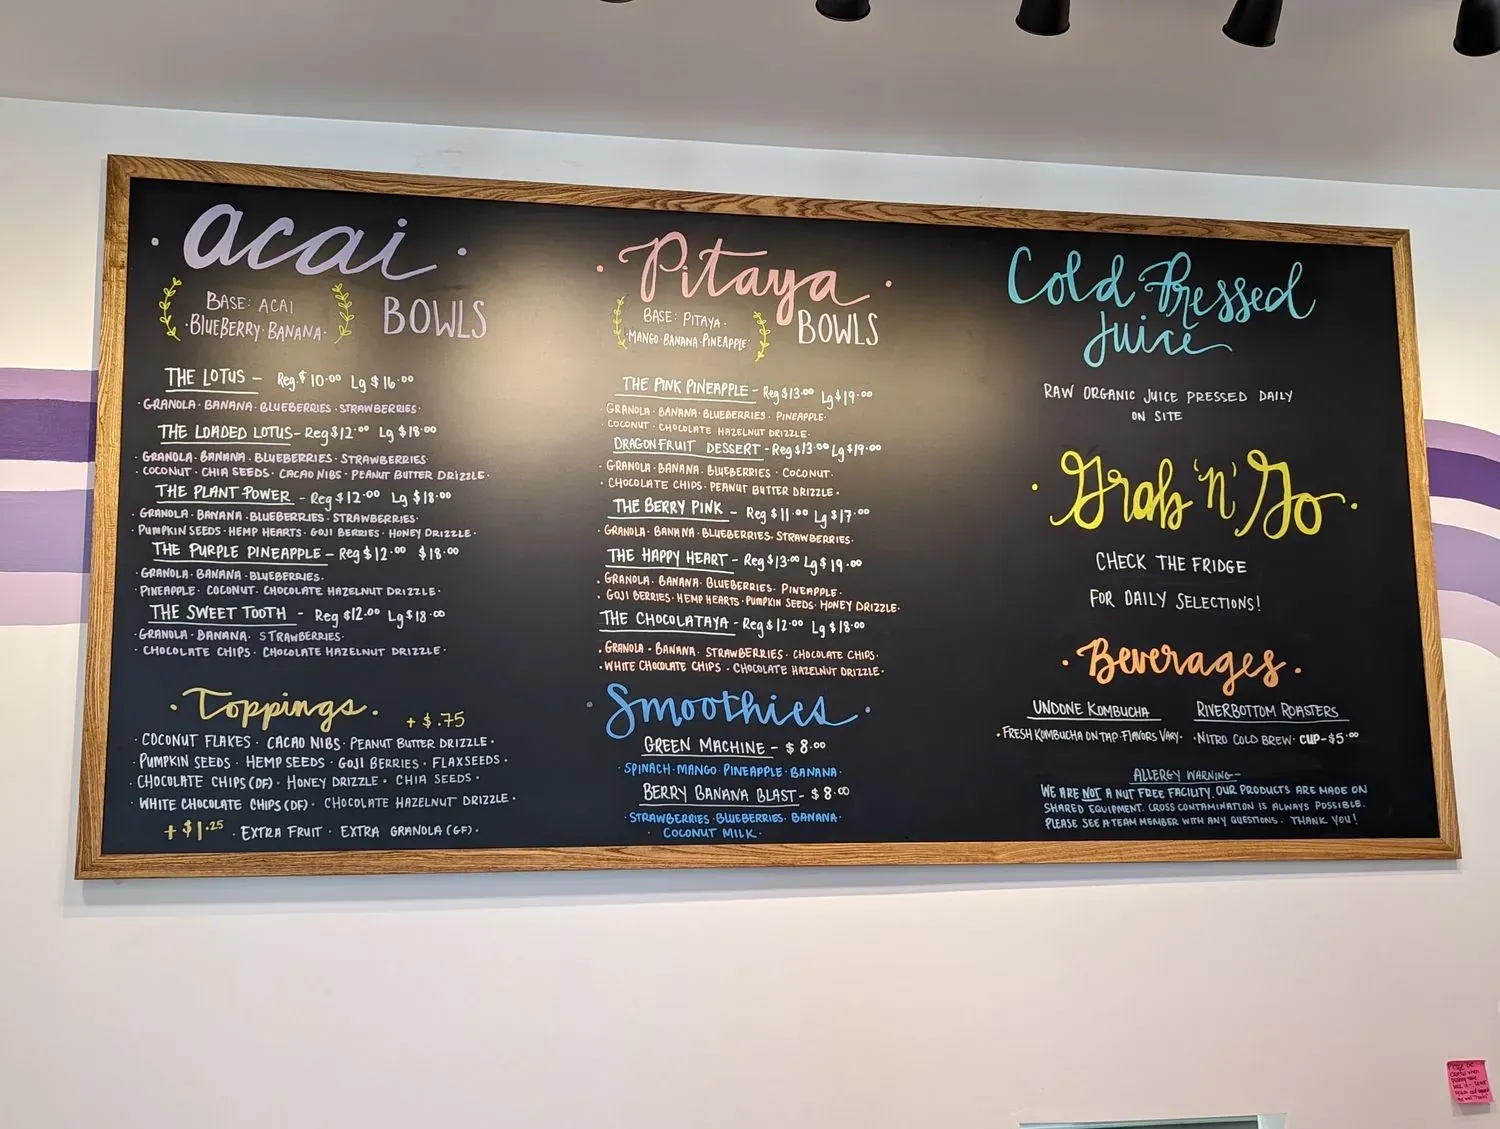 acai
BASE: ACAI
·BLUEBERRY·BANANA·
BOWLS
THE LOTUS – Reg.$10.00 Lg $16.00
·GRANOLA·BANANA·BLUEBERRIES·STRAWBERRIES·
THE LOADED LOTUS – Reg $12.00 Lg $18.00
·GRANOLA·BANANA·BLUEBERRIES·STRAWBERRIES·
·COCONUT·CHIA SEEDS·CACAO NIBS·PEANUT BUTTER DRIZZLE·
THE PLANT POWER – Reg $12.00 Lg $18.00
·GRANOLA·BANANA·BLUEBERRIES·STRAWBERRIES·
PUMPKIN SEEDS·HEMP HEARTS·GOJI BERRIES·HONEY DRIZZLE·
THE PURPLE PINEAPPLE – Reg $12.00 $18.00
·GRANOLA·BANANA·BLUEBERRIES·
·PINEAPPLE·COCONUT·CHOCOLATE HAZELNUT DRIZZLE·
THE SWEET TOOTH – Reg $12.00 Lg $18.00
·GRANOLA·BANANA·STRAWBERRIES·
·CHOCOLATE CHIPS·CHOCOLATE HAZELNUT DRIZZLE·
·Toppings· + $.75
·COCONUT FLAKES·CACAO NIBS·PEANUT BUTTER DRIZZLE·
·PUMPKIN SEEDS·HEMP SEEDS·GOJI BERRIES·FLAXSEEDS·
·CHOCOLATE CHIPS (DF)·HONEY DRIZZLE·CHIA SEEDS·
·WHITE CHOCOLATE CHIPS (DF)·CHOCOLATE HAZELNUT DRIZZLE·
+ $1.25 ·EXTRA FRUIT·EXTRA GRANOLA (GF)·
·Pitaya·
BASE: PITAYA·
·MANGO·BANANA·PINEAPPLE·
BOWLS
THE PINK PINEAPPLE – Reg $13.00 Lg $19.00
·GRANOLA·BANANA·BLUEBERRIES·PINEAPPLE·
·COCONUT·CHOCOLATE HAZELNUT DRIZZLE·
DRAGONFRUIT DESSERT – Reg $13.00 Lg $19.00
·GRANOLA·BANANA·BLUEBERRIES·COCONUT·
·CHOCOLATE CHIPS·PEANUT BUTTER DRIZZLE·
THE BERRY PINK – Reg $11.00 Lg $17.00
·GRANOLA·BANANA·BLUEBERRIES·STRAWBERRIES·
THE HAPPY HEART – Reg $13.00 Lg $19.00
·GRANOLA·BANANA·BLUEBERRIES·PINEAPPLE·
·GOJI BERRIES·HEMP HEARTS·PUMPKIN SEEDS·HONEY DRIZZLE·
THE CHOCOLATAYA – Reg $12.00 Lg $18.00
·GRANOLA·BANANA·STRAWBERRIES·CHOCOLATE CHIPS·
·WHITE CHOCOLATE CHIPS·CHOCOLATE HAZELNUT DRIZZLE·
·Smoothies·
GREEN MACHINE – $8.00
·SPINACH·MANGO·PINEAPPLE·BANANA·
BERRY BANANA BLAST – $8.00
·STRAWBERRIES·BLUEBERRIES·BANANA·
·COCONUT MILK·
Cold Pressed
Juice
RAW ORGANIC JUICE PRESSED DAILY
ON SITE
·Grab 'n' Go·
CHECK THE FRIDGE
FOR DAILY SELECTIONS!
·Beverages·
UNDONE KOMBUCHA
·FRESH KOMBUCHA ON TAP·FLAVORS VARY·
RIVERBOTTOM ROASTERS
·NITRO COLD BREW· CUP – $5.00
ALLERGY WARNING –
WE ARE NOT A NUT FREE FACILITY. OUR PRODUCTS ARE MADE ON
SHARED EQUIPMENT. CROSS CONTAMINATION IS ALWAYS POSSIBLE.
PLEASE SEE A TEAM MEMBER WITH ANY QUESTIONS. THANK YOU!